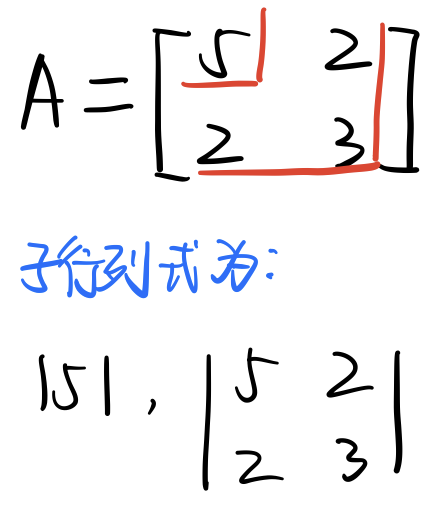 A = [5 2
2 3]
子行列式为:
|5|, |5 2
2 3|